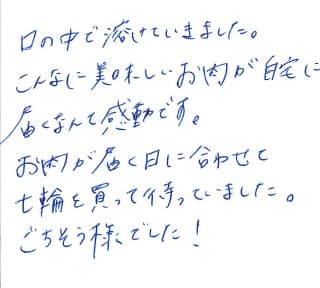 口の中で溶けていきました。
こんなに美味しいお肉が自宅に
届くなんて感動です。
お肉が届く日に合わせて
七輪を買って待っていました。
ごちそう様でした！